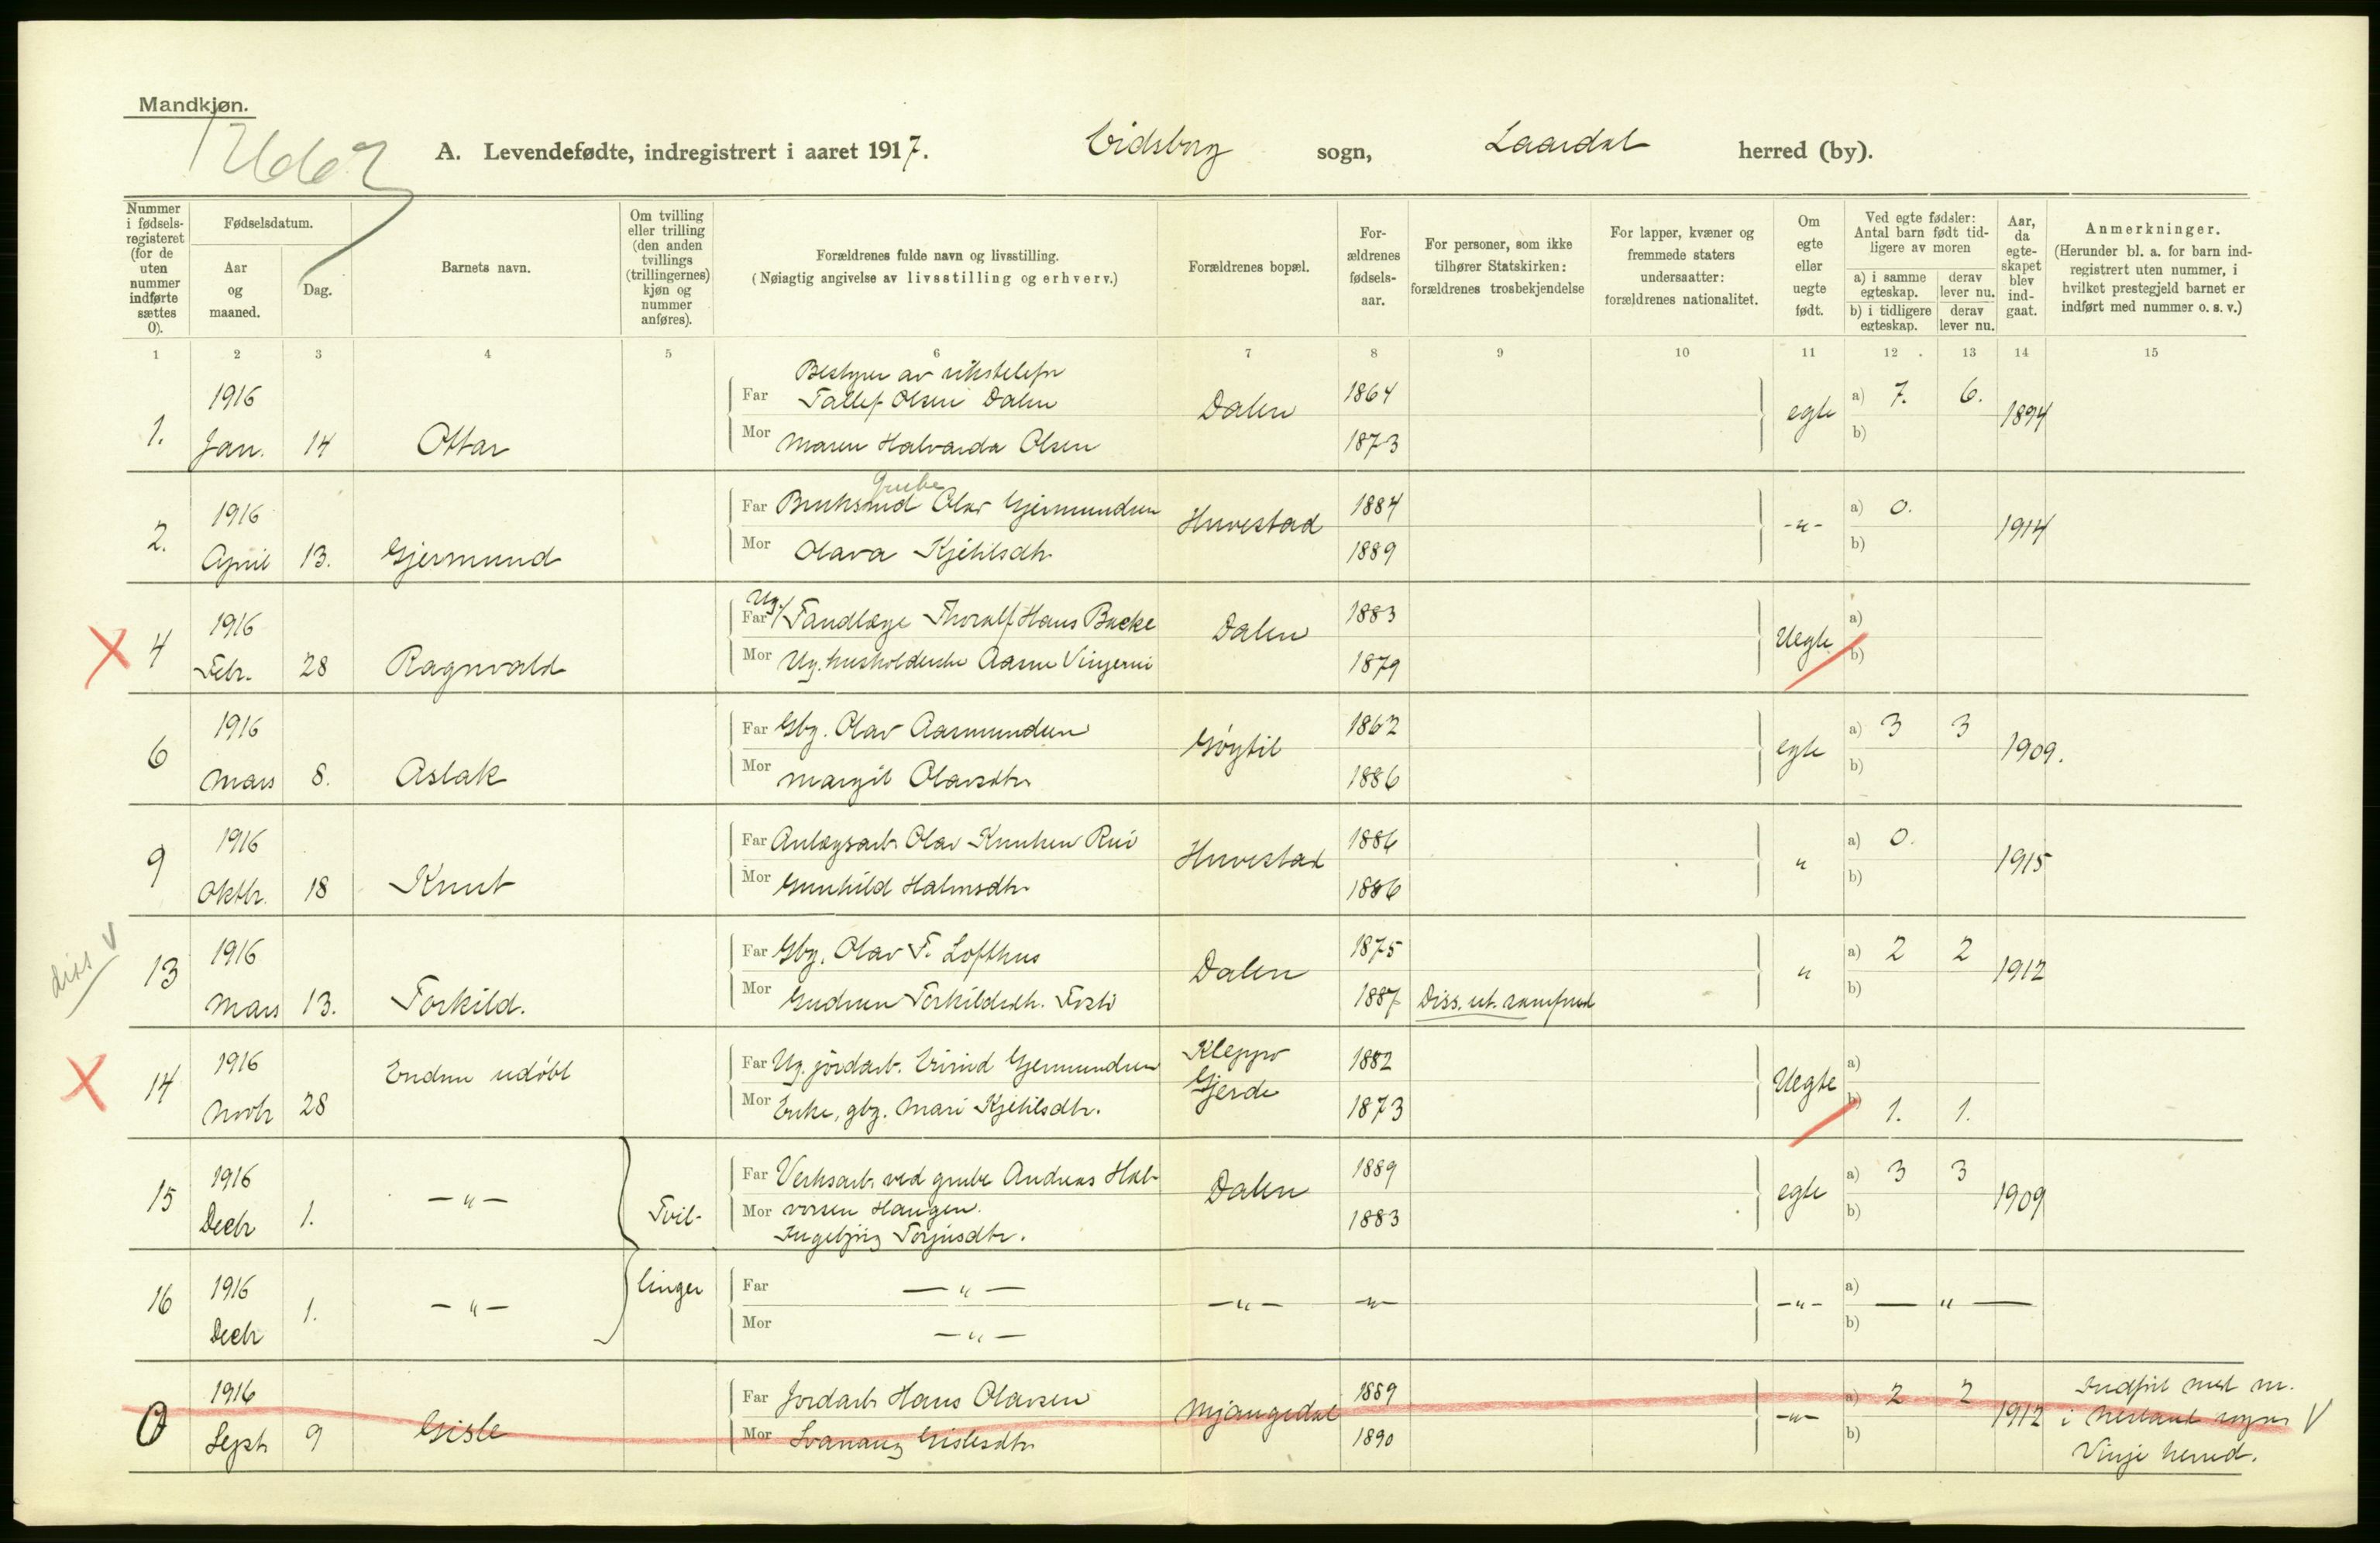 Mandkjøn.
A. Levendefødte, indregistrert i aaret 1917. Eidsborg sogn, Laardal herred (by).
Nummer i fødselsregisteret (for de uten nummer indførte sættes 0).
Fødselsdatum.
Aar og maaned.
Dag.
Barnets navn.
Om tvilling eller trilling (den anden tvillings (trillingernes) kjøn og nummer anføres).
Forældrenes fulde navn og livsstilling.
(Nøiagtig angivelse av livsstilling og erhverv.)
Forældrenes bopæl.
Forældrenes fødselsaar.
For personer, som ikke tilhører Statskirken: forældrenes trosbekjendelse
For lapper, kvæner og fremmede staters undersaatter: forældrenes nationalitet.
Om egte eller uegte født.
Ved egte fødsler: Antal barn født tidligere av moren
a) i samme egteskap. derav lever nu.
b) i tidligere egteskap. derav lever nu.
Aar, da egteskapet blev indgaat.
Anmerkninger.
(Herunder bl. a. for barn indregistrert uten nummer, i hvilket prestegjeld barnet er indført med nummer o. s. v.)
1 2 3 4 5 6 7 8 9 10 11 12 13 14 15
1. 1916 Jan. 14 Ottar
Bestyrer av rikstelefon
Far Tallef Olsen Dalen Dalen 1864 egte a) 7. 6. 1894
Mor Maren Halvarda Olsen 1873 b)
2. 1916 April 13. Gjermund
Grube
Far Bruksmd Olav Gjermundsen Huvestad 1884 -"- a) 0. 1914
Mor Olava Kjetilsdtr. 1889 b)
X 4 1916 Febr. 28 Ragnvald
Far Ug. Tandlæge Thoralf Hans Backe Dalen 1883 Uegte a)
Mor Ug. husholderske Aasne Vinjerui 1879 b)
6 1916 Mars 8. Aslak
Far Gbg. Olav Aasmundsen 1862 egte a) 3 3 1909.
Mor Margit Olavsdtr. 1886 b)
9 1916 Oktbr. 18 Knut
Far Anlægsarb. Olav Knutsen Rui Huvestad 1886 " a) 0. 1915
Mor Gunhild Halvorsdtr. 1886 b)
diss V
13 1916 Mars 13. Torkild.
Far Gbg. Olav T. Lofthus Dalen 1875 " a) 2 2 1912
Mor Gudrun Torkildsdtr. 1887 Diss. ut. samfund b)
X 14 1916 Novbr 28 Endnu udøbt
Far Ug. jordarb. Eivind Gjermundsen Kleppo Gjerde 1882 Uegte a)
Mor Enke, gbg. Mari Kjetilsdtr. 1873 b) 1. 1.
15 1916 Decbr 1. -"- Tvil-
Far Verksarb. ved grube Andreas Hal- Dalen 1889 egte a) 3 3 1909
Mor vorsen Haugen. 1883 b)
Ingebjørg Torjusdtr.
16 1916 Decbr 1. -"- linger
Far -"- -"- -"- -"- a) - " -
Mor -"- b)
0 1916 Septr 9 Gisle
Far Jordarb. Hans Olavsen Mjaugedal 1889 -"- a) 2 2 1912
Mor Svanaug Gislesdtr. 1890 b)
Indført med nr.
i Nesland sogn V
Vinje herred.